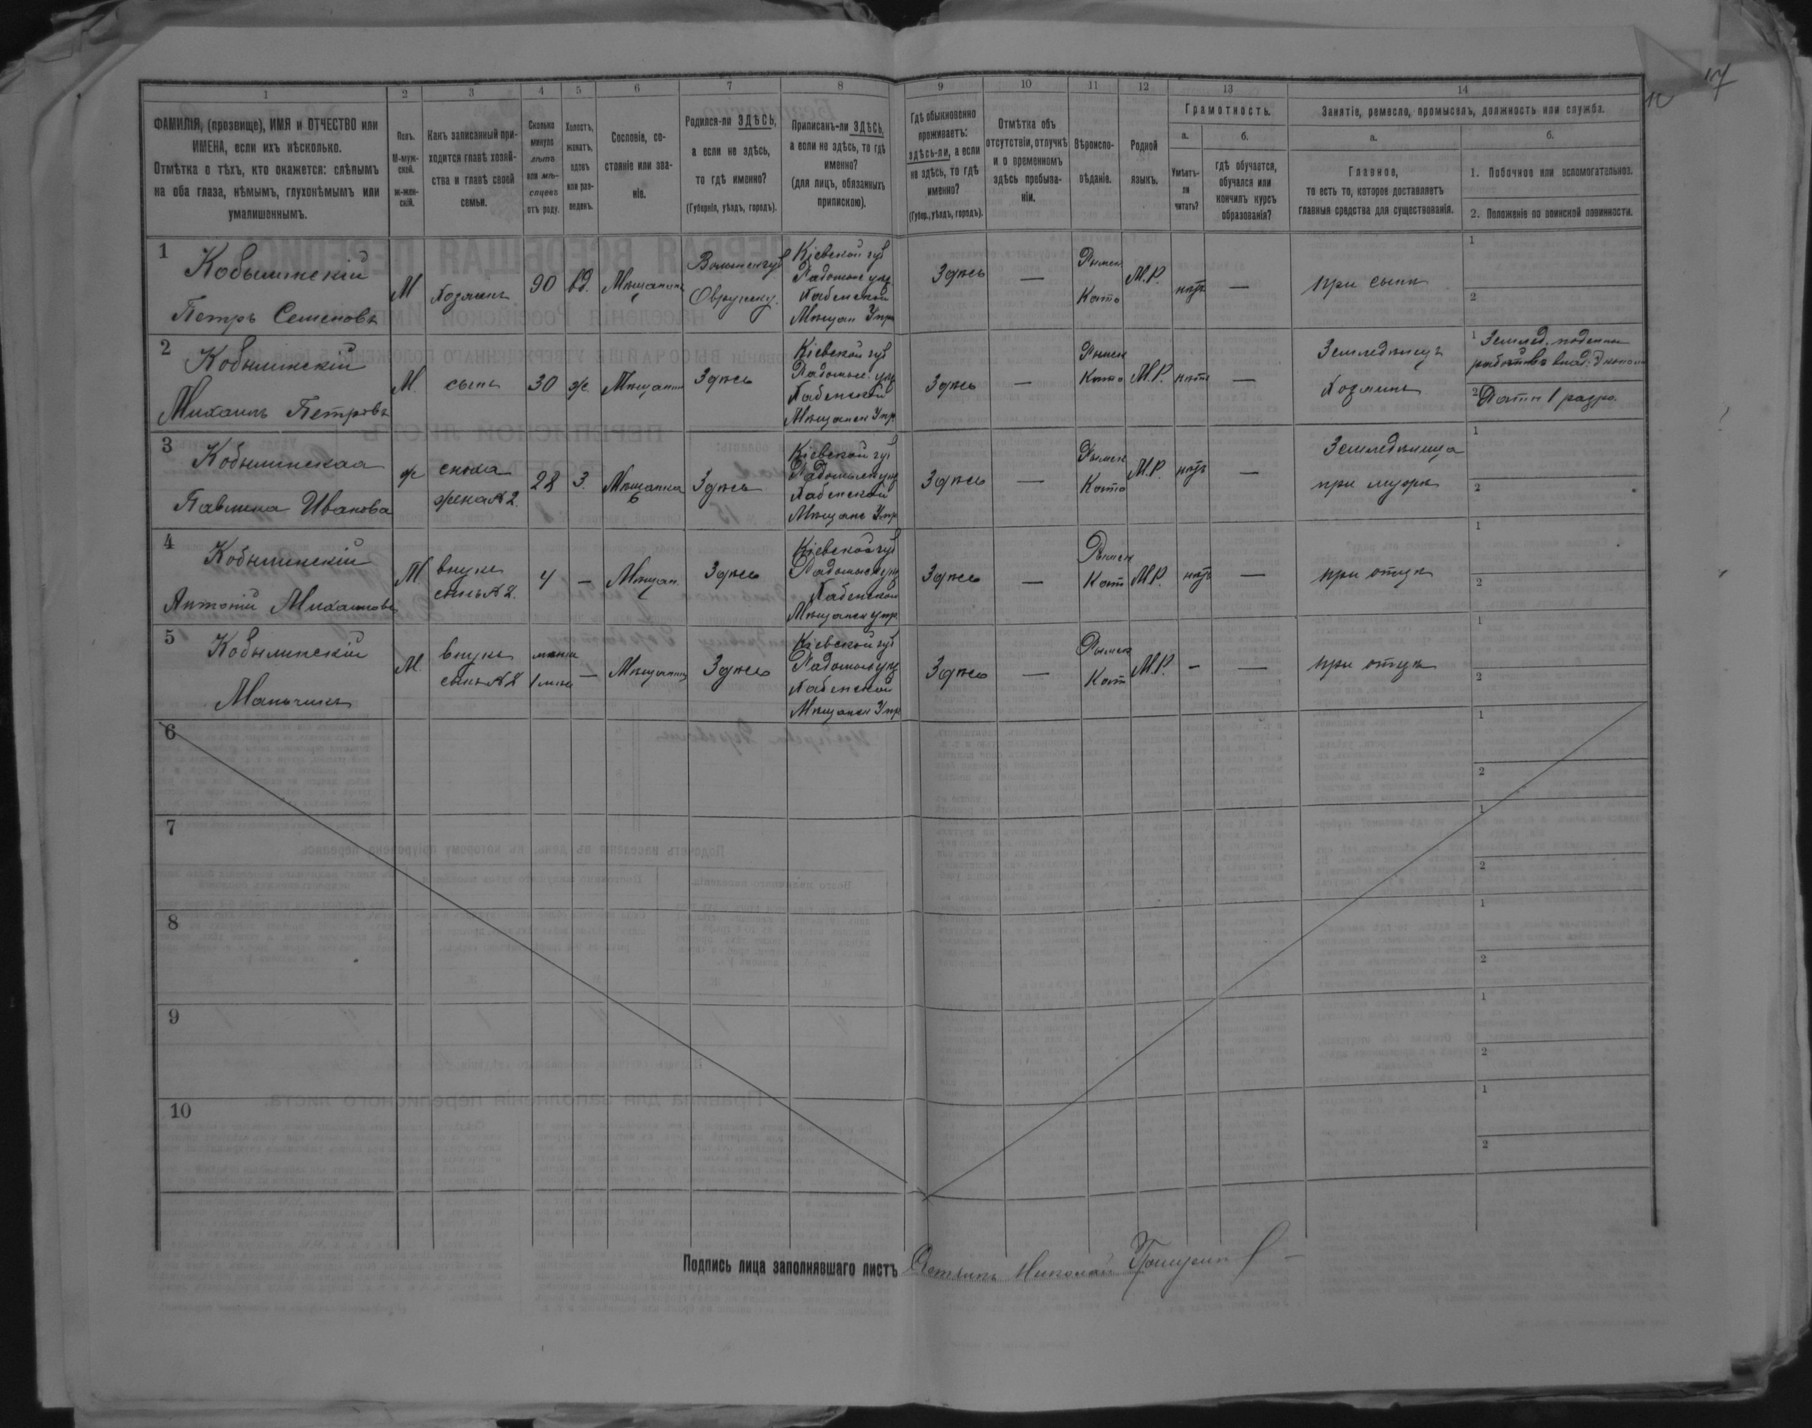 17
1
2
3
4
5
6
7
8
9
10
11
12
13
14
ФАМИЛІЯ, (прозвище), ИМЯ и ОТЧЕСТВО или
ИМЕНА, если ихъ нѣсколько.
Отмѣтка о тѣхъ, кто окажется: слѣпымъ
на оба глаза, нѣмымъ, глухонѣмымъ или
умалишоннымъ.
Полъ.
М-муж-
ской.
ж-жен-
скій.
Какъ записанный при-
ходится главѣ хозяй-
ства и главѣ своей
семьи.
Сколько
минуло
лѣтъ
или мѣ-
сяцевъ
отъ роду.
Холостъ,
женатъ,
вдовъ
или раз-
веденъ.
Сословіе, со-
стояніе или зва-
ніе.
Родился-ли ЗДѢСЬ,
а если не здѣсь,
то гдѣ именно?
(Губернія, уѣздъ, городъ).
Приписанъ-ли ЗДѢСЬ,
а если не здѣсь, то гдѣ
именно?
(для лицъ, обязанныхъ
припискою).
Гдѣ обыкновенно
проживаетъ:
здѣсь-ли, а если
не здѣсь, то гдѣ
именно?
(Губер., уѣздъ, городъ).
Отмѣтка объ
отсутствіи, отлучкѣ
и о временномъ
здѣсь пребыва-
ніи.
Вѣроиспо-
вѣданіе.
Родной
языкъ.
Грамотность.
а.
Умѣетъ-
ли
читать?
б.
гдѣ обучается,
обучался или
кончилъ курсъ
образованія?
Занятіе, ремесло, промыселъ, должность или служба.
а.
Главное,
то есть то, которое доставляетъ
главныя средства для существованія.
б.
1. Побочное или вспомогательное.
2. Положеніе по воинской повинности.
1
Кобылинскій
Петръ Семеновъ
М
Хозяинъ
90
вд.
Мѣщанинъ
Волынск губ
Овручск у.
Кіевской губ
Радомысл уѣз
Хабенской
Мѣщан Упр
Здѣсь
—
Римск
Като
М.Р.
нѣтъ
—
при сынѣ
1
2
2
Кобылинскій
Михаилъ Петровъ
М
сынъ
30
ж
Мѣщанин
Здѣсь
Кіевской губ
Радомысл уѣз
Хабенской
Мѣщанск Упр
Здѣсь
—
Римск
Като
М.Р.
нѣтъ
—
Земледѣлецъ
Хозяинъ
1
2 Ратн 1 разр.
3
Кобылинская
Павлина Иванова
ж
сноха
жена №2.
28
З.
Мѣщанка
Здѣсь
Кіевской губ
Радомысл уѣз
Хабенской
Мѣщанс Упр
Здѣсь
—
Римск
Като
М.Р.
нѣтъ
—
Земледѣлица
при мужѣ
1
2
4
Кобылинскій
Антоній Михаиловъ
М
внукъ
сынъ №2.
4
—
Мѣщан.
Здѣсь
Кіевской губ
Радомысл уѣз
Хабенской
Мѣщанск упр
Здѣсь
—
Римск
Кат
М.Р.
нѣтъ
—
при отцѣ
1
2
5
Кобылинскій
Мальчикъ
М
внукъ
сынъ №2
менѣе
1 мѣс
—
Мѣщанин
Здѣсь
Кіевской губ
Радомысл уѣз
Хабенской
Мѣщанск Упр
Здѣсь
—
Римск
Кат
М.Р.
-
—
при отцѣ
1
2
6
1
2
7
1
2
8
1
2
9
1
2
10
1
2
Подпись лица заполнявшаго листъ Николай